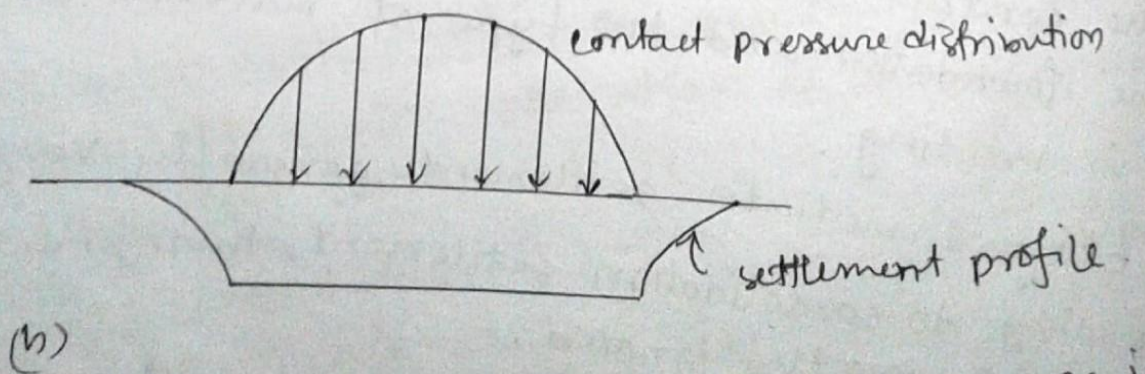 contact pressure distribution
settlement profile
(b)